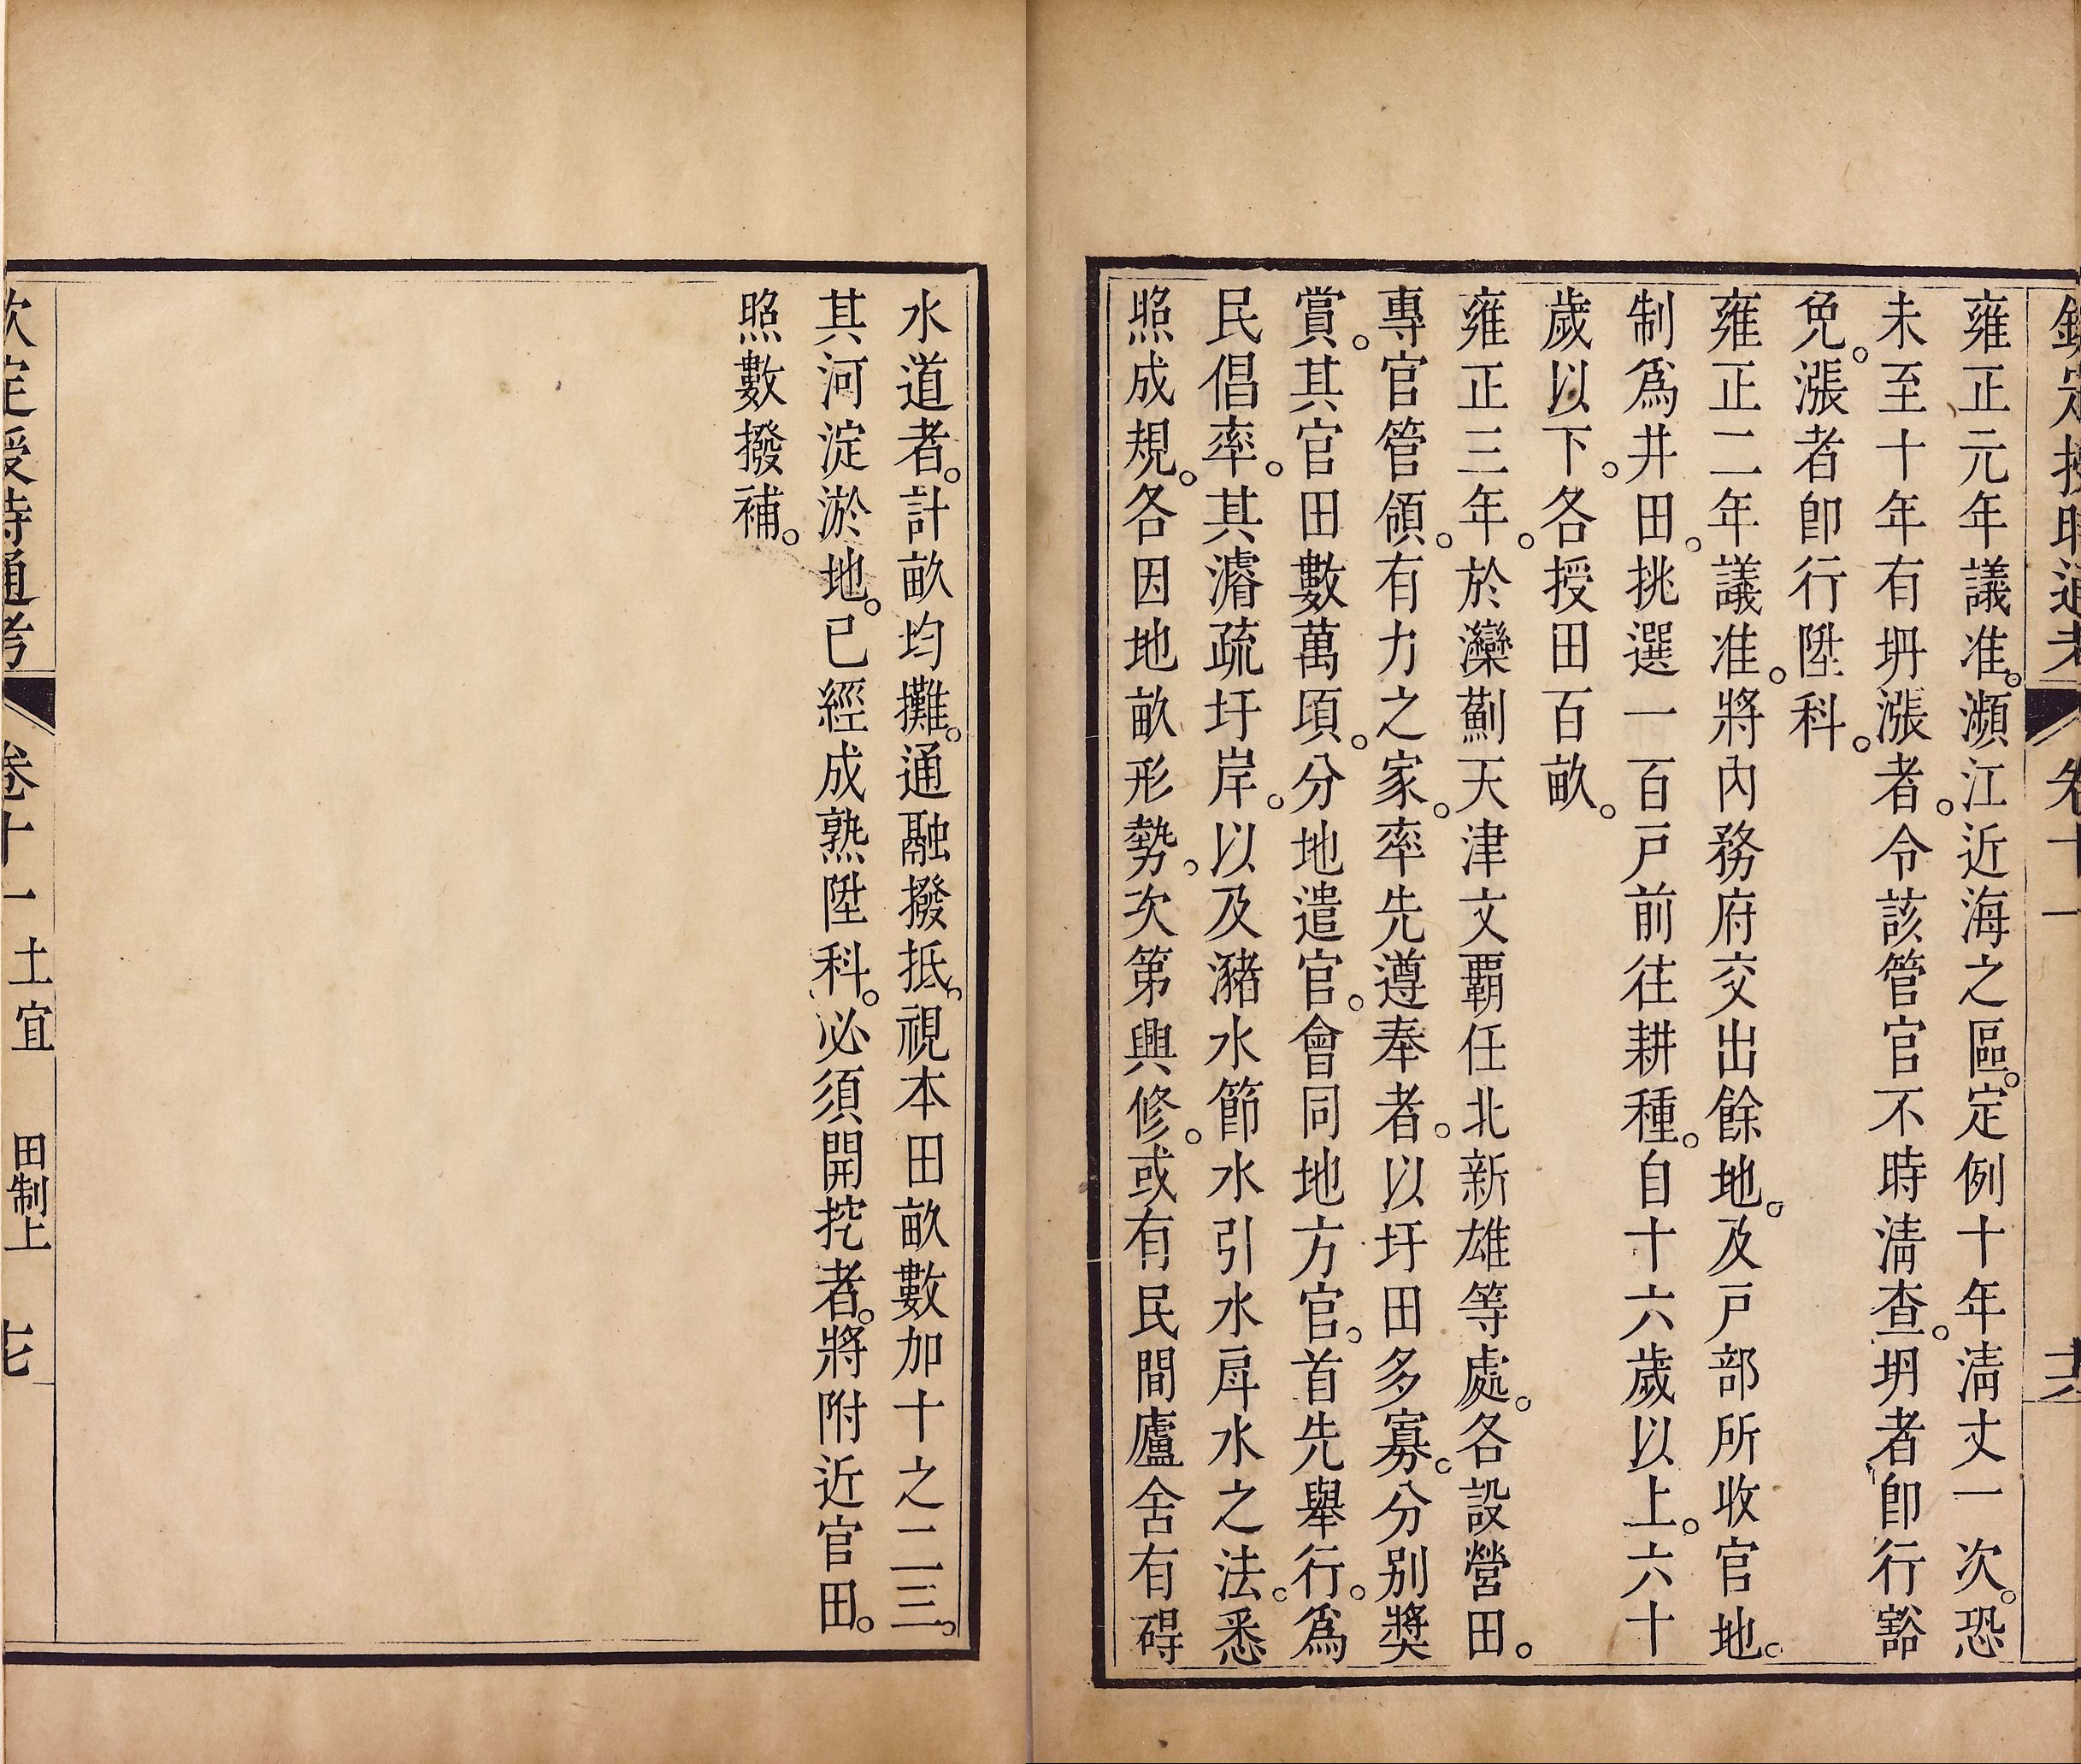 欽定授時通考 卷十一 十六
雍正元年議准。瀕江近海之區。定例十年淸丈一次。恐
未至十年有坍漲者。令該管官不時淸查。坍者卽行豁
免。漲者卽行陞科。
雍正二年議准。將內務府交出餘地。及戸部所收官地。
制爲井田。挑選一百戸前往耕種。自十六歲以上。六十
歲以下。各授田百畝。
雍正三年。於灤薊天津文覇任北新雄等處。各設營田。
專官管領。有力之家。率先遵奉者。以圩田多寡。分別獎
賞。其官田數萬頃。分地遣官。會同地方官。首先舉行。爲
民倡率。其濬疏圩岸。以及瀦水節水引水戽水之法。悉
照成規。各因地畝形勢。次第興修。或有民間廬舍有碍
水道者。計畝均攤。通融撥抵。視本田畝數加十之二三。
其河淀淤地。已經成熟陞科。必須開挖者。將附近官田。
照數撥補。
欽定授時通考 卷十一 土宜 田制上 七